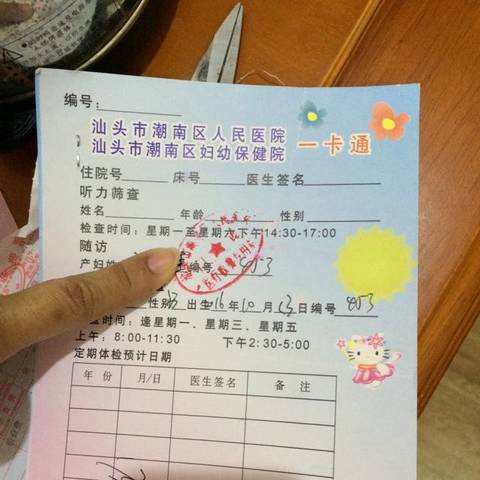 编号:
汕头市潮南区人民医院
汕头市潮南区妇幼保健院 一卡通
住院号 床号 医生签名
听力筛查
姓名 年龄 性别
检查时间:星期一至星期六下午14:30-17:00
随访
产妇姓 编号 403
性别 出生16年10月13日编号 403
时间:逢星期一、星期三、星期五
上午:8:00-11:30 下午2:30-5:00
定期体检预计日期
年份 月/日 医生签名 备注